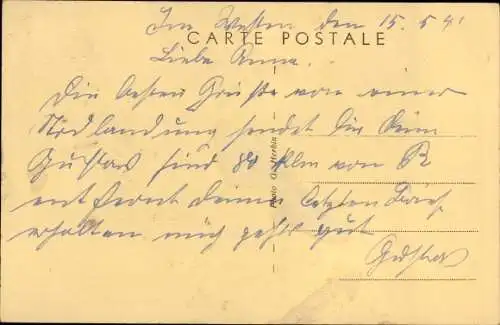 Im Westen den 15. 5 41
CARTE POSTALE
Liebe Anna.
Die besten Grüße von einer
Notlandung sendet dir dein
Gustav sind 80 klm von R
entfernt deinen letzten Brief
erhalten mich gehts gut
Gustav
Photo